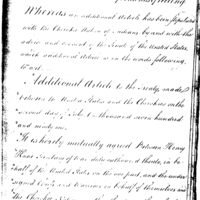 Whereas an additional Article has been stipulated
with the Cherokee Nation of Indians by and with the
advice and consent of the Senate of the United States,
which additional Article is in the words following
to wit
Additional Article to the Treaty made
between the United States and the Cherokees on the
second day of July one thousand seven hundred
and ninety one
It is hereby mutually agreed between Henry
Knox Secretary of
half of the United States on the one part, and the under
signed Chiefs and Warriors in behalf of themselves and
the Cherokee Nation